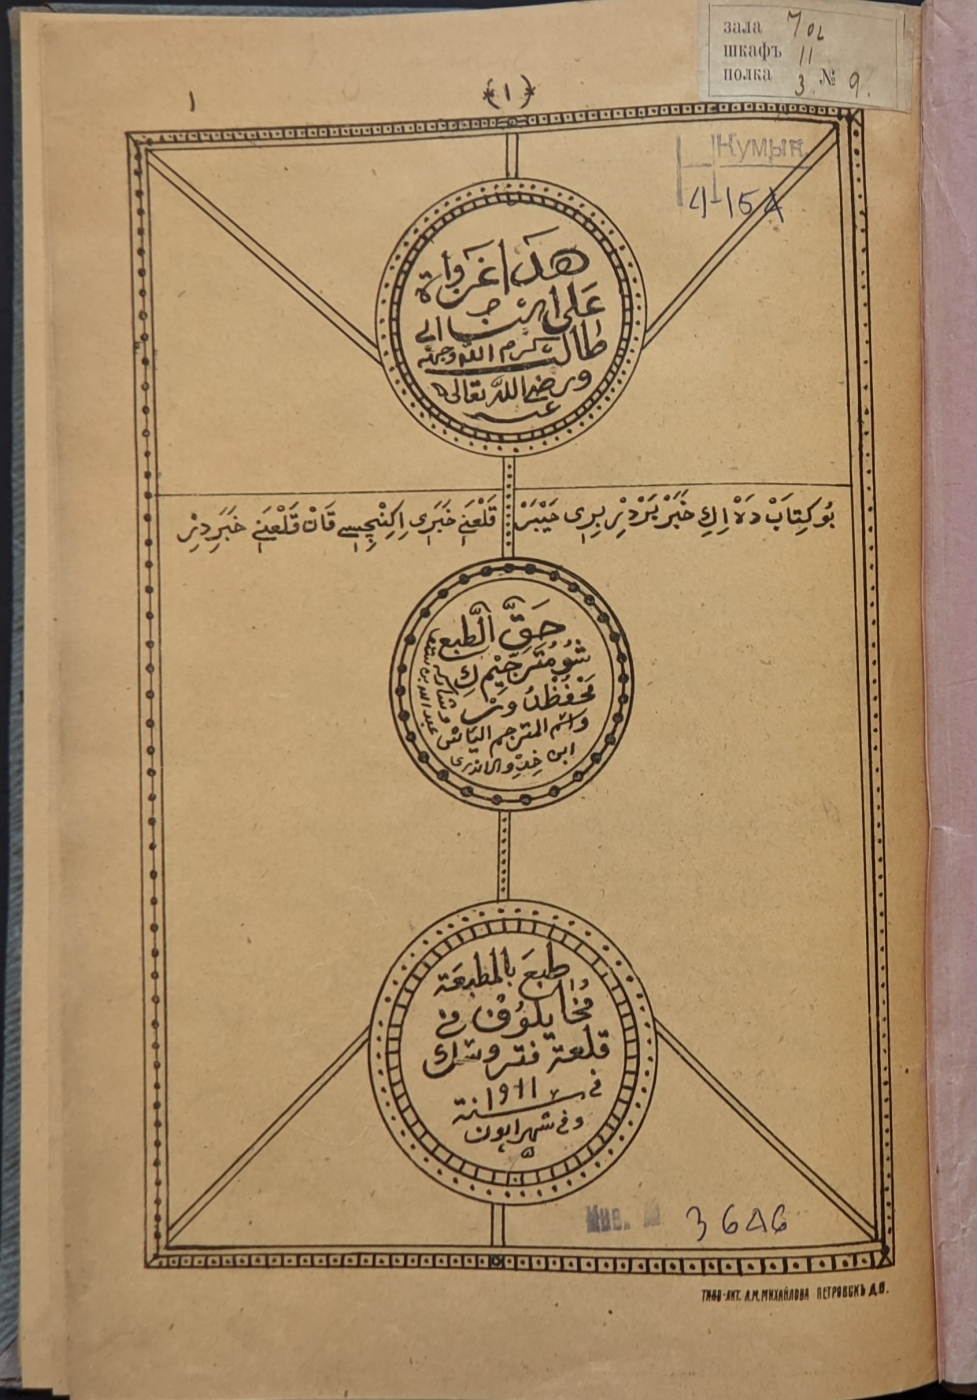 зала 7 or
шкафъ 11
полка 3 № 9.
١ (١)
Кумык.
4-154
هَذَا غَزَوَاة
عَلى ابن ابي
طالب كرم الله وجهه
ورضي الله تعالى
عنه
بُو كِتَابْ دَهْ اِكِ خَبَرْ بَرْدِرْ بِرِى خَيْبَرْ قَلْعَنِے خَبَرِى اِكِنْجِسِے قَانْ قَلْعَنِے خَبَرِدِرْ
حَقَّ الطَّبع
شُو مُتَرجِّيم كِ
مَحْفُظْدُ وِرْ
واسم المترجم الياس
ابن
طُبعَ بالمطبعَة
مُخَايلُوْف في
قلعَة فتروسك
في سنة ١٩١١
وفي شهر ايون
٥
Инв. № 3646
ТИПО-ЛИТ. А.М.МИХАЙЛОВА ПЕТРОВСКЪ Д.О.